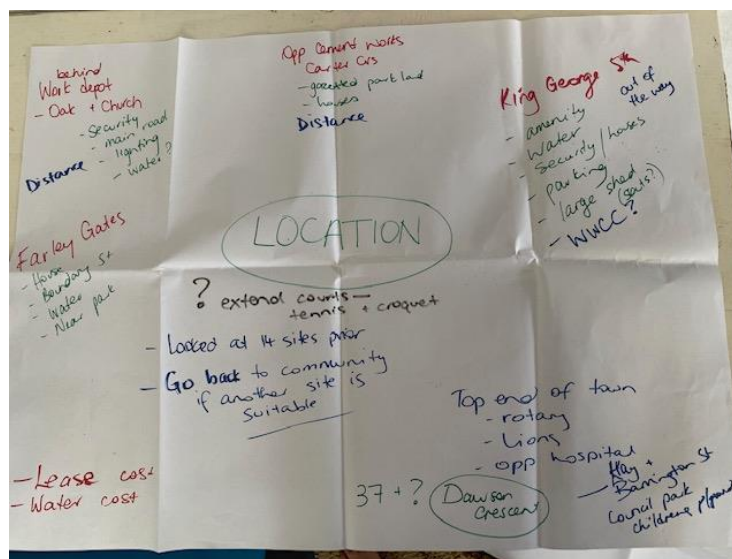 behind
Work depot
- Oak + Church
- Security
- main road
- lighting
- water?
Distance
Opp Cement Works
Carter Crs
- gazetted park land
- houses
Distance
King George 5th
out of
the way
- amenity
- Water
- Security/houses
- parking
- large shed
- WWCC?
LOCATION
Farley Gates
- House
- Boundary st
- Water
- Near park
? extend courts -
tennis + croquet
- Looked at 14 sites prior
- Go back to community
if another site is
suitable
Top end of town
- rotary
- Lions
- opp hospital
Hay +
- Barrington St
Council park
childrens p/ground
- Lease cost
- Water cost
37 + ?
Dawson
Crescent